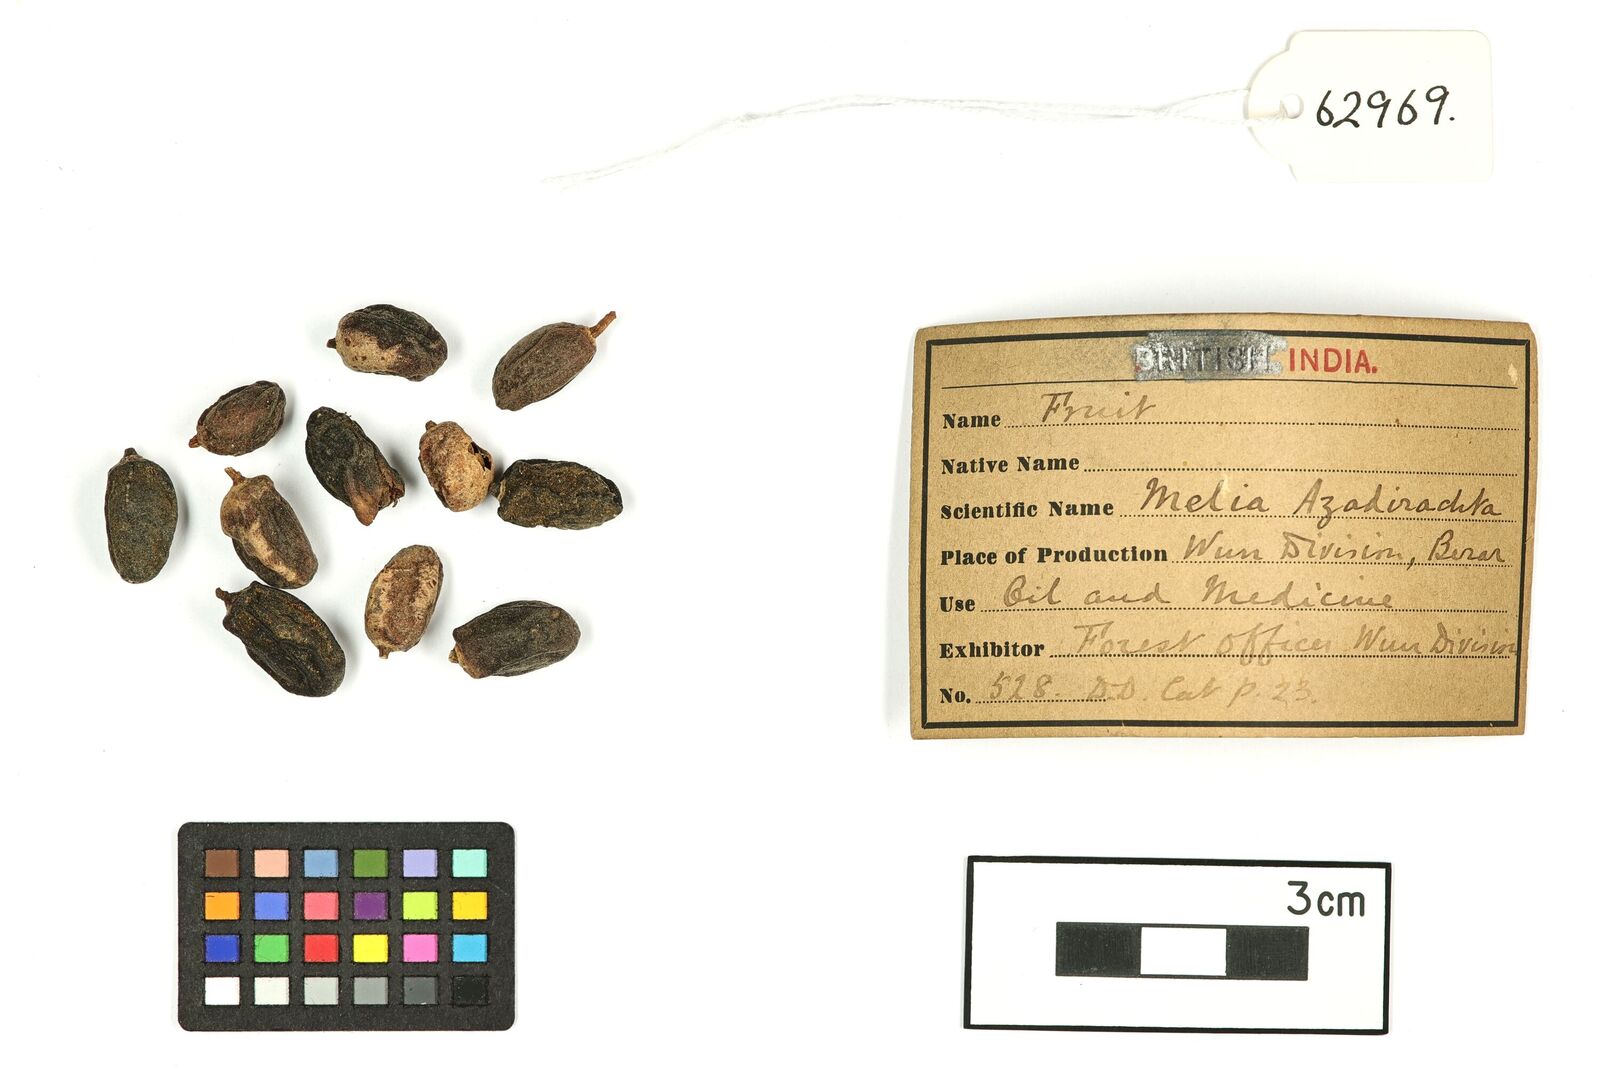 62969.
BRITISH INDIA.
Name Fruit
Native Name
Scientific Name Melia Azadirachta
Place of Production Wun Division, Berar
Use Oil and Medicine
Exhibitor Forest Officer Wun Division
No. 528. D.D. Cat p. 23.
3cm